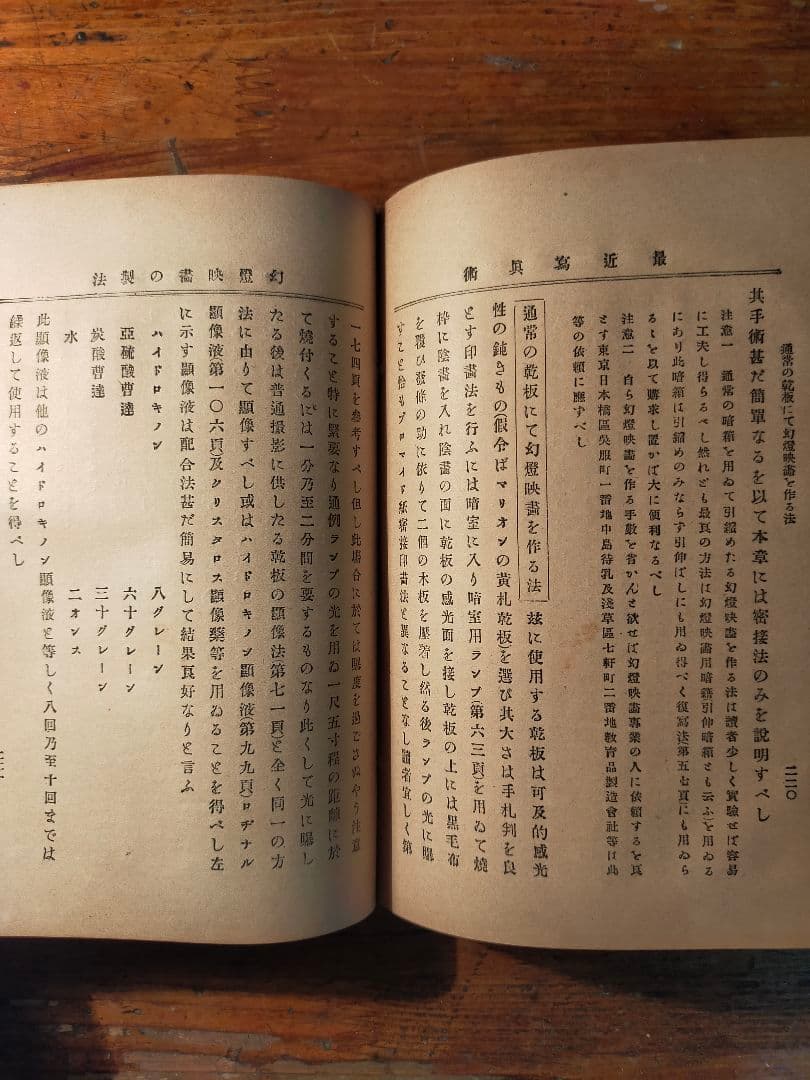 最近寫眞術
通常の乾板にて幻燈映畵を作る法
二二〇
其手術甚だ簡單なるを以て本章には密接法のみを說明すべし
注意一 通常の暗箱を用ゐて引縮めたる幻燈映畵を作る法は讀者少しく實驗せば容易
に工夫し得らるべし然れども最良の方法は幻燈映畵用暗箱(引伸暗箱とも云ふ)を用ゐる
にあり此暗箱は引縮めのみならず引伸ばしにも用ゐ得べく復寫法(第五七頁)にも用ゐら
るゝを以て購求し置かば大に便利なるべし
注意二 自ら幻燈映畵を作る手數を省かんと欲せば幻燈映畵專業の人に依賴するを良
とす東京日本橋區吳服町一番地中島待乳及淺草區七軒町二番地敎育品製造會社等は此
等の依賴に應ずべし
通常の乾板にて幻燈映畵を作る法 玆に使用する乾板は可及的感光
性の鈍きもの(假令ばマリオンの黃札乾板)を選び其大さは手札判を良
とす印畵法を行ふには暗室に入り暗室用ランプ(第六三頁)を用ゐて燒
枠に陰畵を入れ陰畵の面に乾板の感光面を接し乾板の上には黑毛布
を覆ひ發條の助に依りて二個の木板を壓着し然る後ランプの光に曝
すこと恰もブロマイド紙密接印畵法と異なることなし讀者宜しく第
幻燈映畵の製法
一七四頁を參考すべし但し此塲合に於ては曝度を過ごさぬやう注意
すること特に緊要なり通例ランプの光を用ゐ一尺五寸程の距離に於
て燒付くるには一分乃至二分間を要するものなり此くして光に曝し
たる後は普通撮影に供したる乾板の顯像法(第七一頁)と全く同一の方
法に由りて顯像すべし或はハイドロキノン顯像液(第九九頁)ロヂナル
顯像液(第一〇六頁)及クリスタロス顯像藥等を用ゐることを得べし左
に示す顯像液は配合法甚だ簡易にして結果良好なりと言ふ
ハイドロキノン 八グレーン
亞硫酸曹達 六十グレーン
炭酸曹達 三十グレーン
水 二オンス
此顯像液は他のハイドロキノン顯像液と等しく八回乃至十回までは
繰返して使用することを得べし